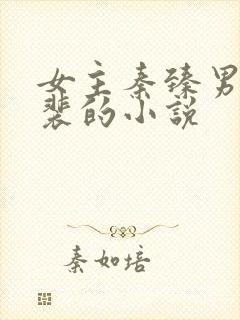 女主秦臻男
裴的小说
秦如培